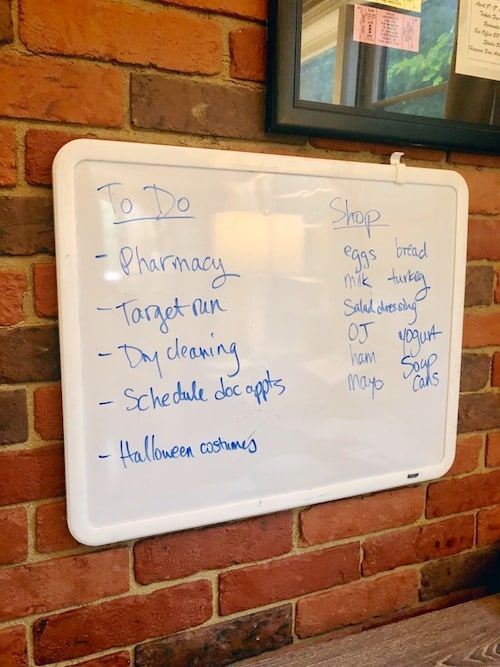 To Do
- Pharmacy
- Target run
- Dry cleaning
- Schedule doc appts
- Halloween costumes
Shop
eggs bread
milk turkey
Salad dressing
OJ yogurt
ham Soap
mayo cans